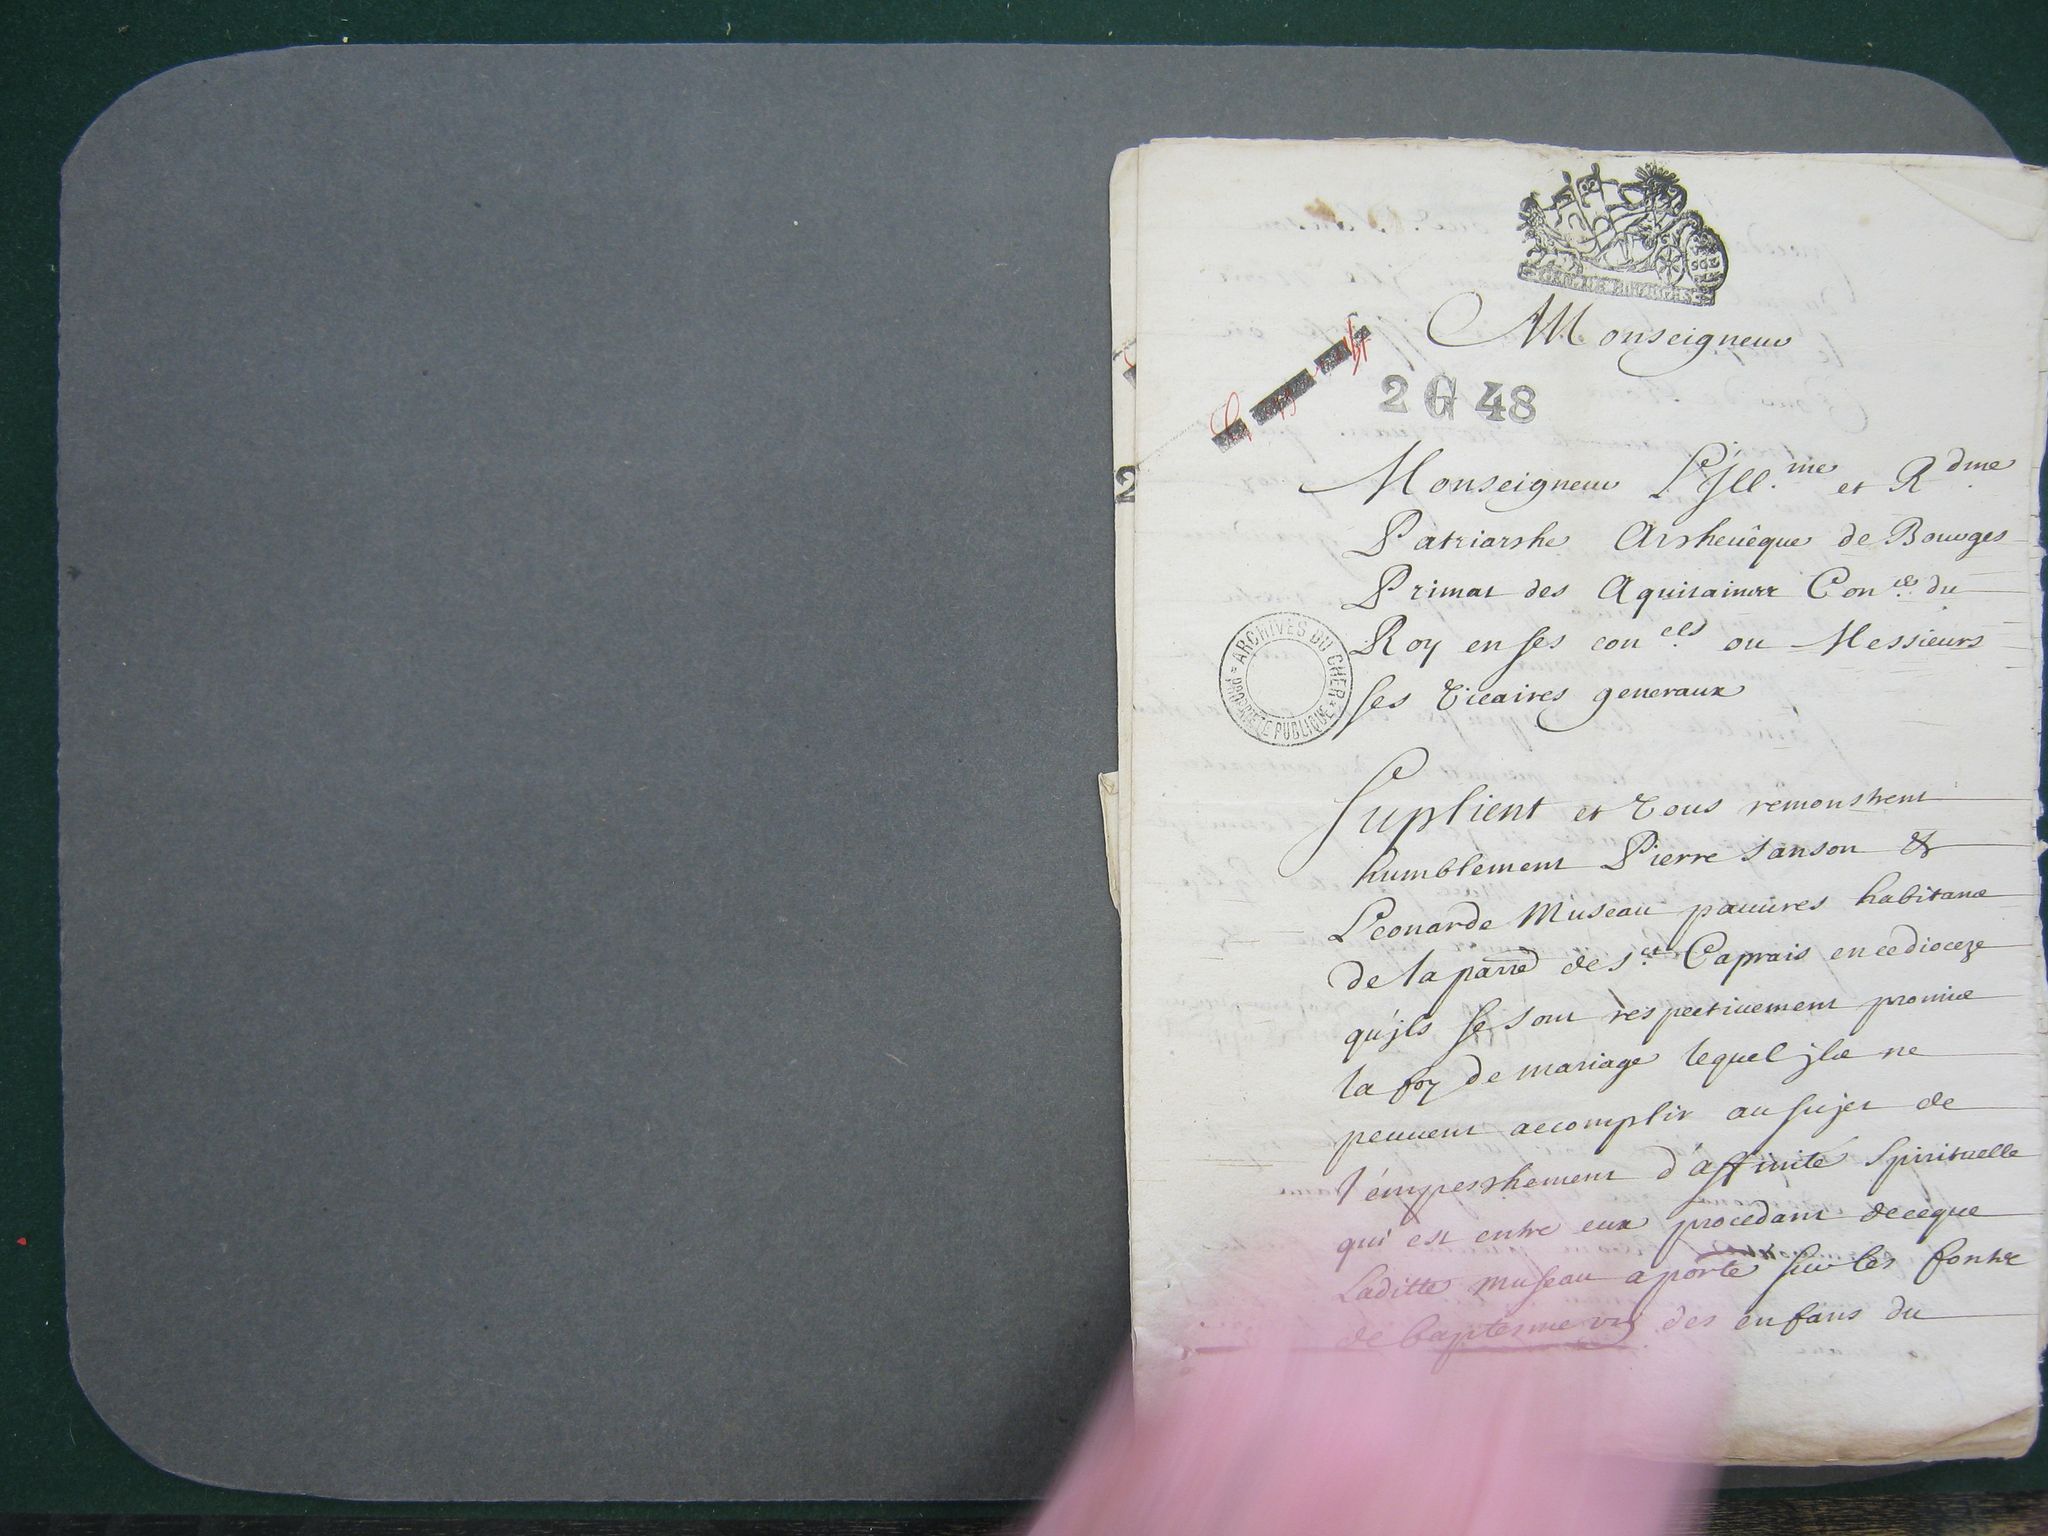 GEN. DE BOURGES
Monseigneur
2 G 48
2
Monseigneur L'Jll.me et R.dme
Patriarshe Arsheuêque de Bourges
Primat des Aquitaines Con.er du
Roy en ses con.els ou Messieurs
ses Vicaires generaux
ARCHIVES DU CHER
PROPRIETE PUBLIQUE
Suplient et Vous remonstrent
humblement Pierre Sanson &
Leonarde Museau pauures habitans
de la parre de St. Caprais en ce dioceze
qu'jls se sont respectiuement promise
la foy de mariage lequel jls ne
peuuent accomplir au sujet de
l'empeshement d'affinité spirituelle
qui est entre eux procedant de ce que
Laditte Museau a porté sur les fonts
de baptesme un des enfans du